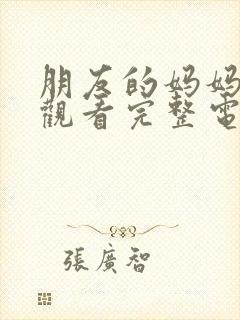 朋友的妈妈
觀看完整電
張廣智